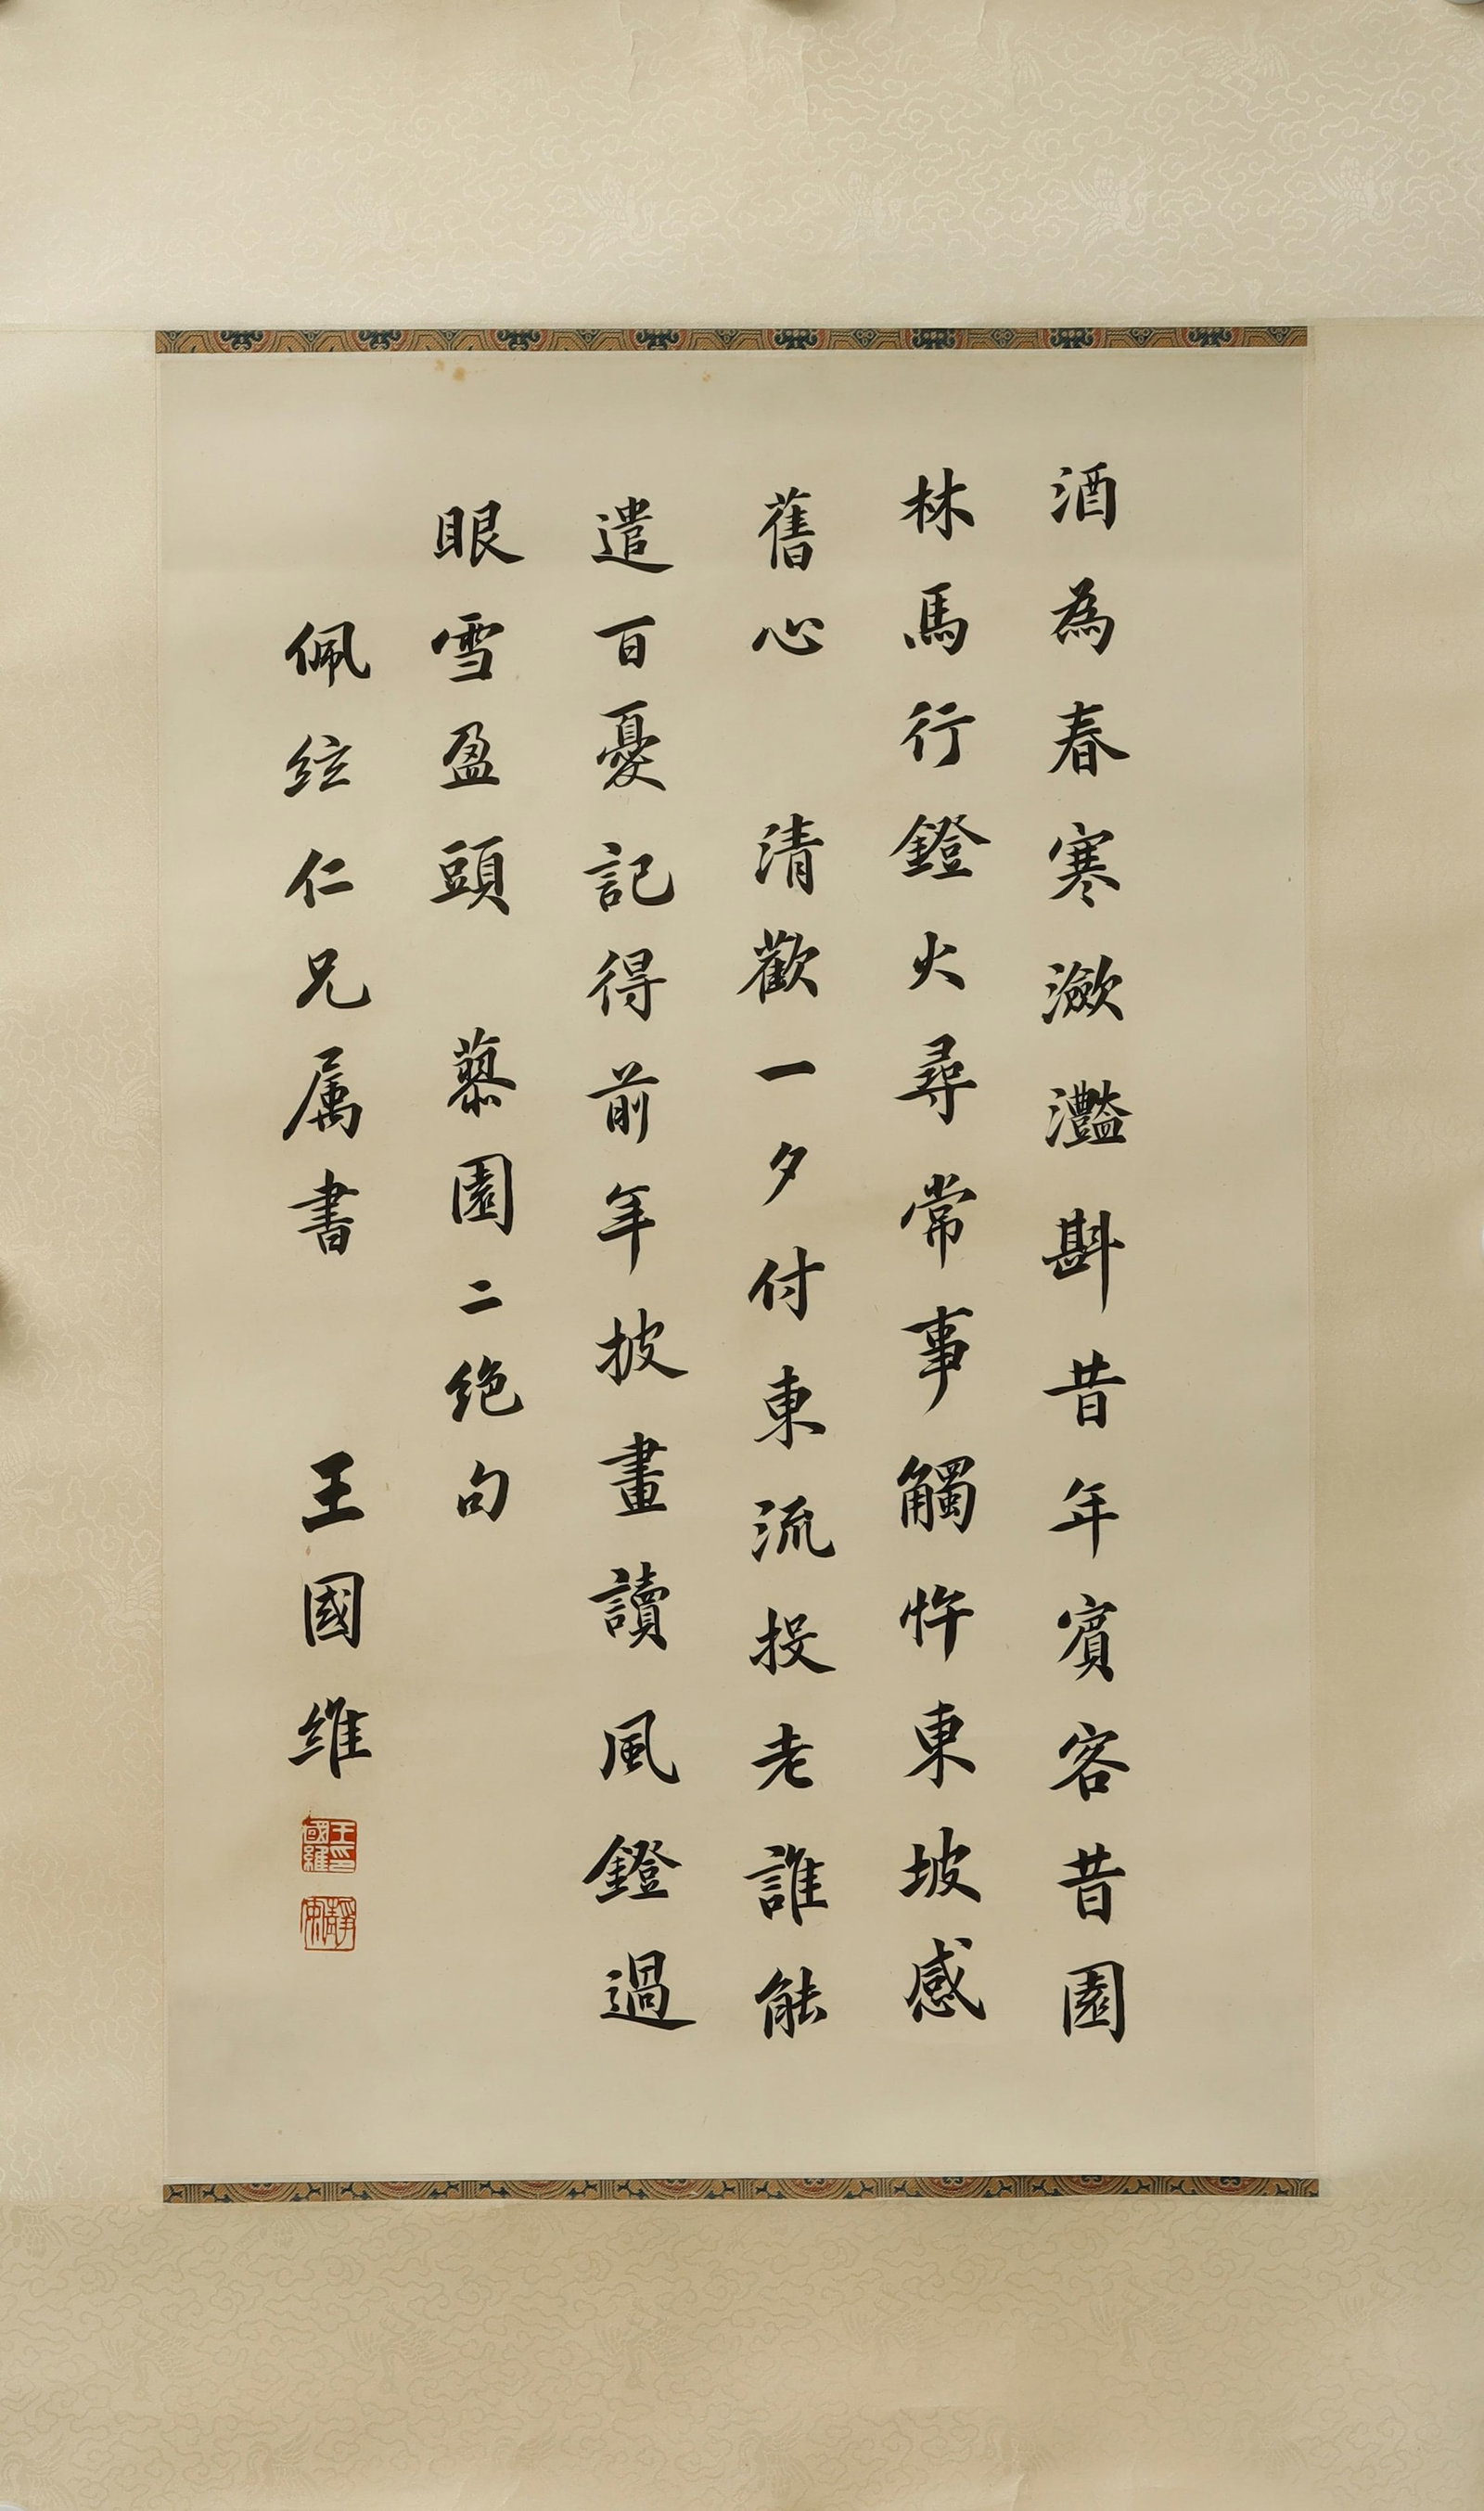 酒為春寒潋灩斟昔年賓客昔園
林馬行鐙火尋常事觸忤東坡感
舊心 清歡一夕付東流投老誰能
遣百憂記得前年披畫讀風鐙過
眼雪盈頭 藝園二絕句
佩紘仁兄属書 王國維
王國維印
靜安